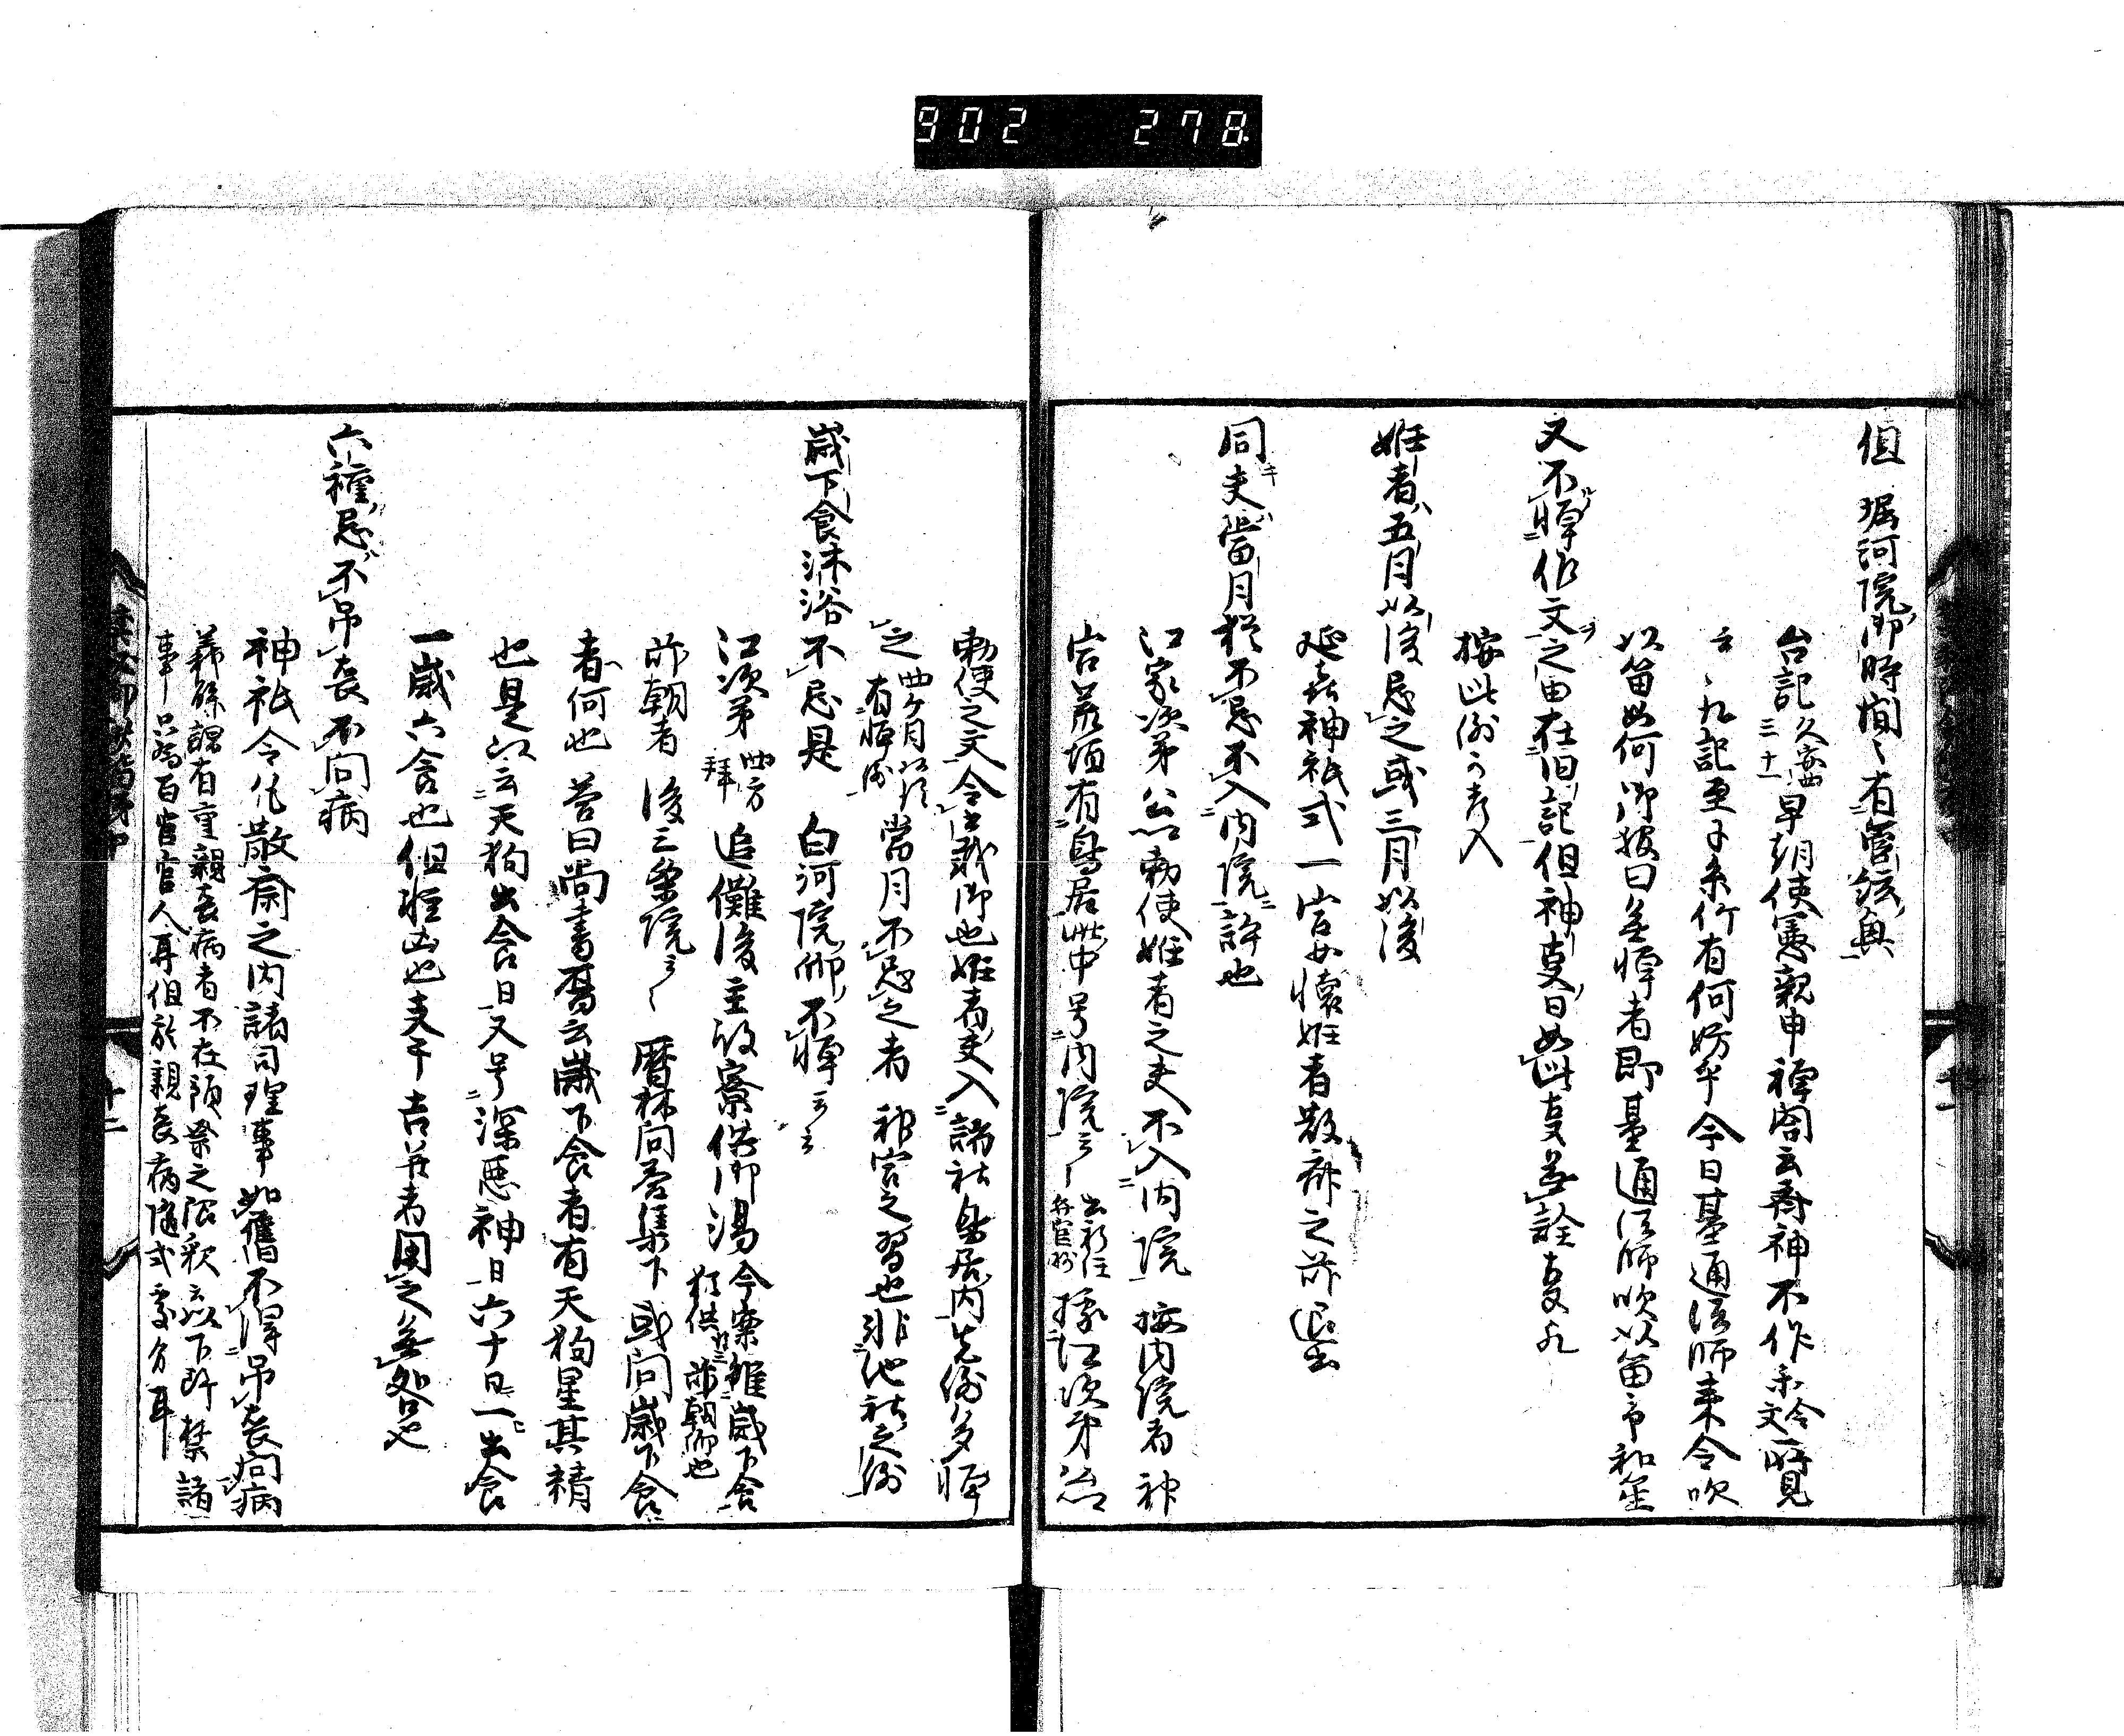 902 278
但 堀河院御時間〻有管絃興
台記 久安四 三 十一 早朝使憲親申禅閤云斎神不作 令文 所見
云〻九記至于糸竹有何妨乎今日基通法師来令吹
以笛如何御報曰無憚者即基通法師吹以笛予和笙
又不憚作文之由在旧記但神事日如此事無詮事歟
按此例可考入
妊者五月以後忌之或三月以後
延喜神祇式一宮女懐妊者散斎之前退出
同夫当月猶不忌不入内院許也
江家次第公卿勅使妊者之夫不入内院 按内院者神
宮荒垣有鳥居此中号内院云〻 拠江次第公卿
勅使之文令出裁御也妊者夫入諸社鳥居内先例多憚
之 四ケ月以後有憚例 当月不忌之者 神宮之習也非他社之例
歳下食沐浴不忌是 白河院御不憚云云
江次第 四方拝 追儺後主殿寮供御湯 今案雖歳下食猶供 前朝御也
前朝者 後三条院云〻 暦林問答集下 或問歳下食
者何也 答曰尚書暦云歳下食者有天狗星其精
也是以云天狗出食日又号深悪神日六十日一出食
一歳六食也但雖凶也支干吉并者用之無咎也
六種忌不弔喪不問病
神祇令凡散斎之内諸司理事如旧不得弔喪問病
義解謂有重親喪病者不在預祭之限釈云以下所禁諸
事只為百官官人耳但於親喪病随式処分耳
十一
十二